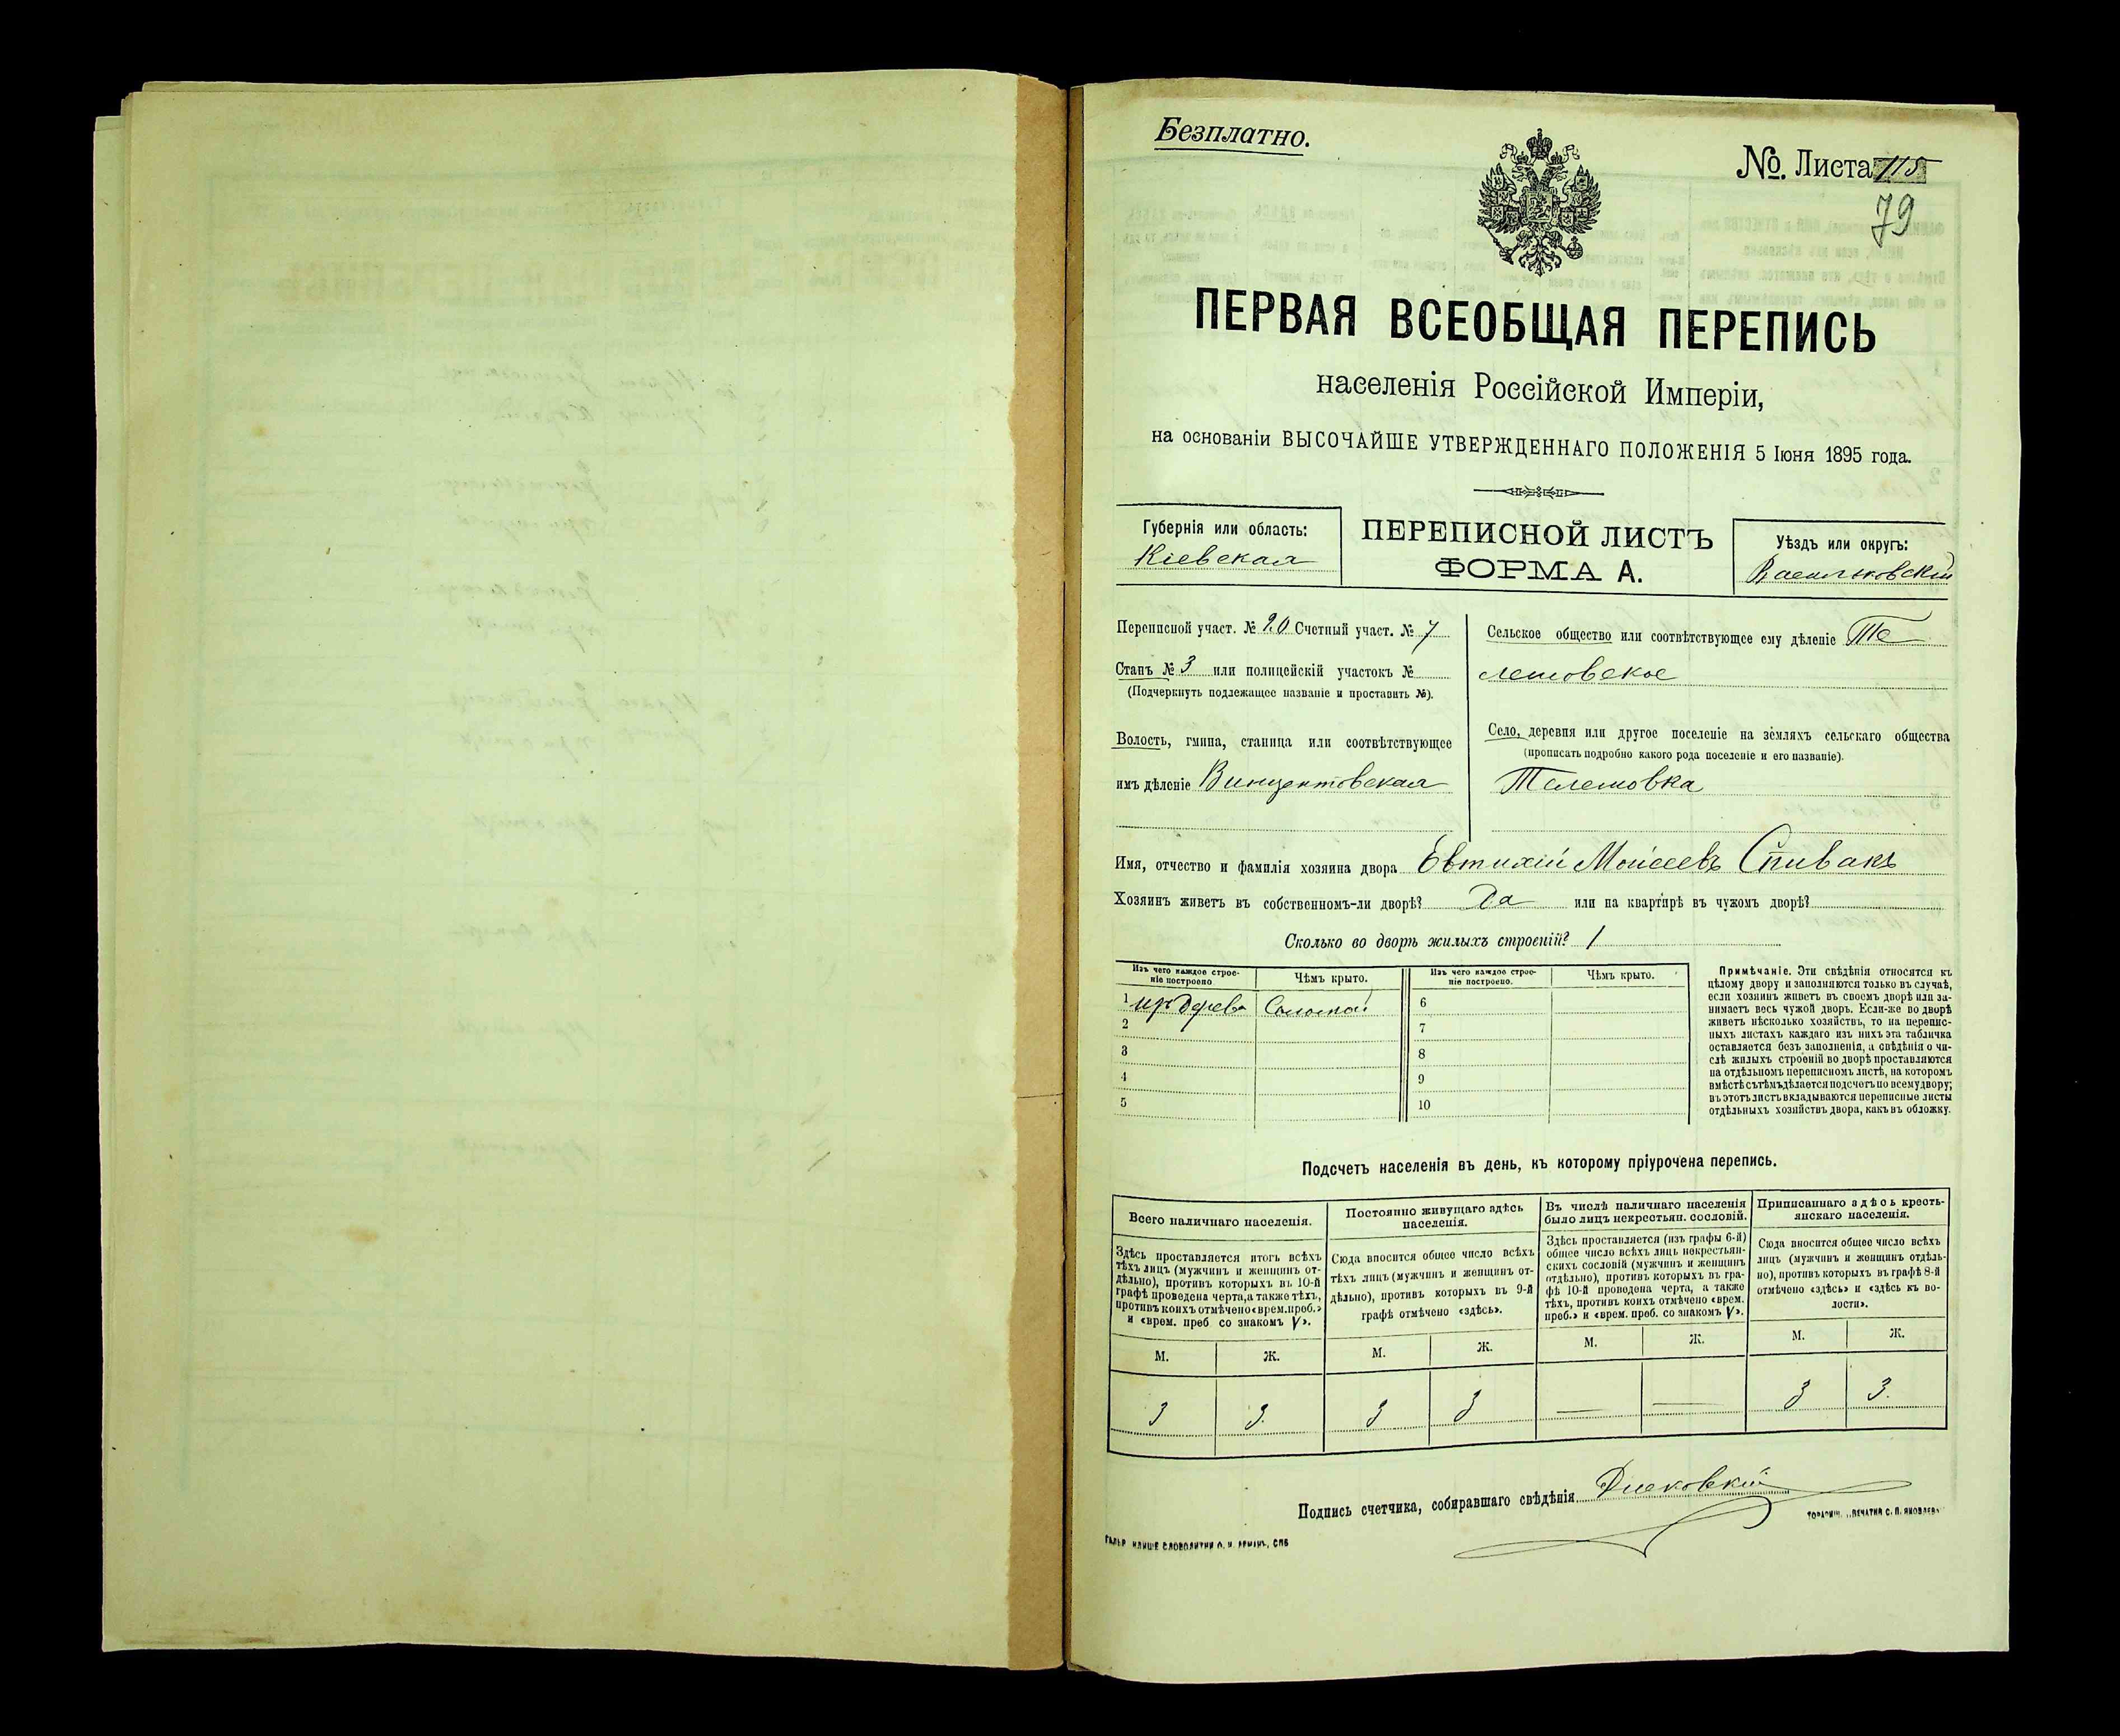 Безплатно.
№. Листа 115
79
ПЕРВАЯ ВСЕОБЩАЯ ПЕРЕПИСЬ
населенія Россійской Имперіи,
на основаніи ВЫСОЧАЙШЕ УТВЕРЖДЕННАГО ПОЛОЖЕНІЯ 5 Іюня 1895 года.
Губернія или область:
Кіевская
ПЕРЕПИСНОЙ ЛИСТЪ
ФОРМА А.
Уѣздъ или округъ:
Васильковскій
Переписной участ. № 20 Счетный участ. № 7
Станъ № 3 или полицейскій участокъ №
(Подчеркнуть подлежащее названіе и проставить №).
Волость, гмина, станица или соотвѣтствующее
имъ дѣленіе Винцентовская
Сельское общество или соотвѣтствующее ему дѣленіе Те
лешовское
Село, деревня или другое поселеніе на земляхъ сельскаго общества
(прописать подробно какого рода поселеніе и его названіе).
Телешовка
Имя, отчество и фамилія хозяина двора Евтихій Моісеевъ Спивакъ
Хозяинъ живетъ въ собственномъ-ли дворѣ? Да или на квартирѣ въ чужомъ дворѣ?
Сколько во дворѣ жилыхъ строеній? 1
Изъ чего каждое строе-
ніе построено.
Чѣмъ крыто.
Изъ чего каждое строе-
ніе построено.
Чѣмъ крыто.
1 изъ дерева Соломой 6
2 7
3 8
4 9
5 10
Примѣчаніе. Эти свѣдѣнія относятся къ
цѣлому двору и заполняются только въ случаѣ,
если хозяинъ живетъ въ своемъ дворѣ или за-
нимаетъ весь чужой дворъ. Если-же во дворѣ
живетъ нѣсколько хозяйствъ, то на перепис-
ныхъ листахъ каждаго изъ нихъ эта табличка
оставляется безъ заполненія, а свѣдѣнія о чи-
слѣ жилыхъ строеній во дворѣ проставляются
на отдѣльномъ переписномъ листѣ, на которомъ
вмѣстѣ съ тѣмъ дѣлается подсчетъ по всему двору;
въ этотъ листъ вкладываются переписные листы
отдѣльныхъ хозяйствъ двора, какъ въ обложку.
Подсчетъ населенія въ день, къ которому пріурочена перепись.
Всего наличнаго населенія.
Постоянно живущаго здѣсь
населенія.
Въ числѣ наличнаго населенія
было лицъ некрестьян. сословій.
Приписаннаго здѣсь кресть-
янскаго населенія.
Здѣсь проставляется итогъ всѣхъ
тѣхъ лицъ (мужчинъ и женщинъ от-
дѣльно), противъ которыхъ въ 10-й
графѣ проведена черта, а также тѣхъ,
противъ коихъ отмѣчено «врем. преб.»
и «врем. преб. со знакомъ V».
Сюда вносится общее число всѣхъ
тѣхъ лицъ (мужчинъ и женщинъ от-
дѣльно), противъ которыхъ въ 9-й
графѣ отмѣчено «здѣсь».
Здѣсь проставляется (изъ графы 6-й)
общее число всѣхъ лицъ некрестьян-
скихъ сословій (мужчинъ и женщинъ
отдѣльно), противъ которыхъ въ гра-
фѣ 10-й проведена черта, а также
тѣхъ, противъ коихъ отмѣчено «врем.
преб.» и «врем. преб. со знакомъ V».
Сюда вносится общее число всѣхъ
лицъ (мужчинъ и женщинъ отдѣль-
но), противъ которыхъ въ графѣ 8-й
отмѣчено «здѣсь» и «здѣсь къ во-
лости».
М. Ж. М. Ж. М. Ж. М. Ж.
3 3. 3 3 — — 3 3.
Подпись счетчика, собиравшаго свѣдѣнія
ТОВАРИЩ. „ПЕЧАТНЯ С. П. ЯКОВЛЕВА“
СЛОВОЛИТНИ О. И. ЛЕМАНЪ, СПБ